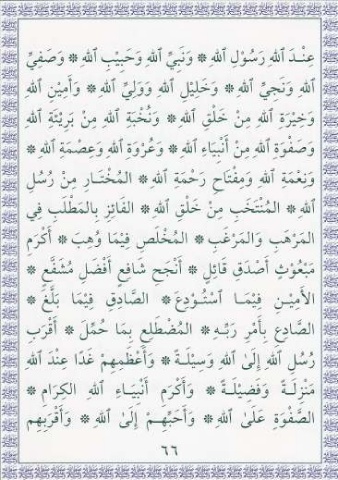 عِنْدَ اللهِ رَسُوْلِ اللهِ ۞ وَنَبِيِّ اللهِ وَحَبِيْبِ اللهِ ۞ وَصَفِيِّ
اللهِ وَنَجِيِّ اللهِ ۞ وَخَلِيْلِ اللهِ وَوَلِيِّ اللهِ ۞ وَأَمِيْنِ اللهِ
وَخِيَرَةِ اللهِ مِنْ خَلْقِ اللهِ ۞ وَنُخْبَةِ اللهِ مِنْ بَرِيَّةِ اللهِ
وَصَفْوَةِ اللهِ مِنْ أَنْبِيَاءِ اللهِ ۞ وَعُرْوَةِ اللهِ وَعِصْمَةِ اللهِ ۞
وَنِعْمَةِ اللهِ وَمِفْتَاحِ رَحْمَةِ اللهِ ۞ المُخْتَارِ مِنْ رُسُلِ
اللهِ ۞ المُنْتَخَبِ مِنْ خَلْقِ اللهِ ۞ الفَائِزِ بِالمَطْلَبِ فِي
المَرْهَبِ وَالمَرْغَبِ ۞ المُخْلَصِ فِيْمَا وُهِبَ ۞ أَكْرَمِ
مَبْعُوْثٍ أَصْدَقِ قَائِلٍ ۞ أَنْجَحِ شَافِعٍ أَفْضَلِ مُشَفَّعٍ ۞
الأَمِيْنِ فِيْمَا اسْتُوْدِعَ ۞ الصَّادِقِ فِيْمَا بَلَّغَ ۞
الصَّادِعِ بِأَمْرِ رَبِّهِ ۞ المُضْطَلِعِ بِمَا حُمِّلَ ۞ أَقْرَبِ
رُسُلِ اللهِ إِلَى اللهِ وَسِيْلَةً ۞ وَأَعْظَمِهِمْ غَدًا عِنْدَ اللهِ
مَنْزِلَةً وَفَضِيْلَةً ۞ وَأَكْرَمِ أَنْبِيَاءِ اللهِ الكِرَامِ ۞
الصَّفْوَةِ عَلَى اللهِ ۞ وَأَحَبِّهِمْ إِلَى اللهِ ۞ وَأَقْرَبِهِمْ
٦٦